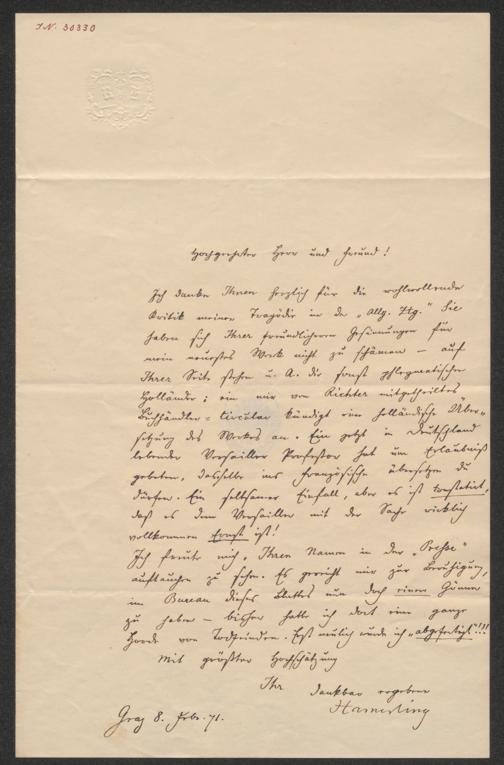 I.N. 30330
Hochgeehrter Herr und Freund!
Ich danke Ihnen herzlich für die wohlwollende
Kritik meiner Tragödie in der „Allg. Ztg." Sie
haben sich Ihrer freundlicheren Gesinnungen für
mein neuestes Werk nicht zu schämen – auf
Ihrer Seite stehen u. A. die sonst phlegmatischen
Holländer; ein mir von Richter mitgetheiltes
Buchhändler=Circular kündigt eine holländische Über-
setzung des Werkes an. Ein jetzt in Deutschland
lebender Versailler Professor hat um Erlaubniß
gebeten, dasselbe ins Französische übersetzen zu
dürfen. Ein seltsamer Einfall, aber es ist constatirt,
daß es dem Versailler mit der Sache wirklich
vollkommen Ernst ist!
Ich freute mich, Ihren Namen in der „Presse"
auftauchen zu sehen. Es gereicht mir zur Beruhigung,
im Bureau dieses Blattes nun doch einen Gönner
zu haben – bisher hatte ich dort eine ganze
Horde von Todfeinden. Erst neulich wurde ich „abgeschlachtet"!!!
Mit größter Hochschätzung
Ihr dankbar ergebener
Hamerling
Graz 8. Febr. 71.